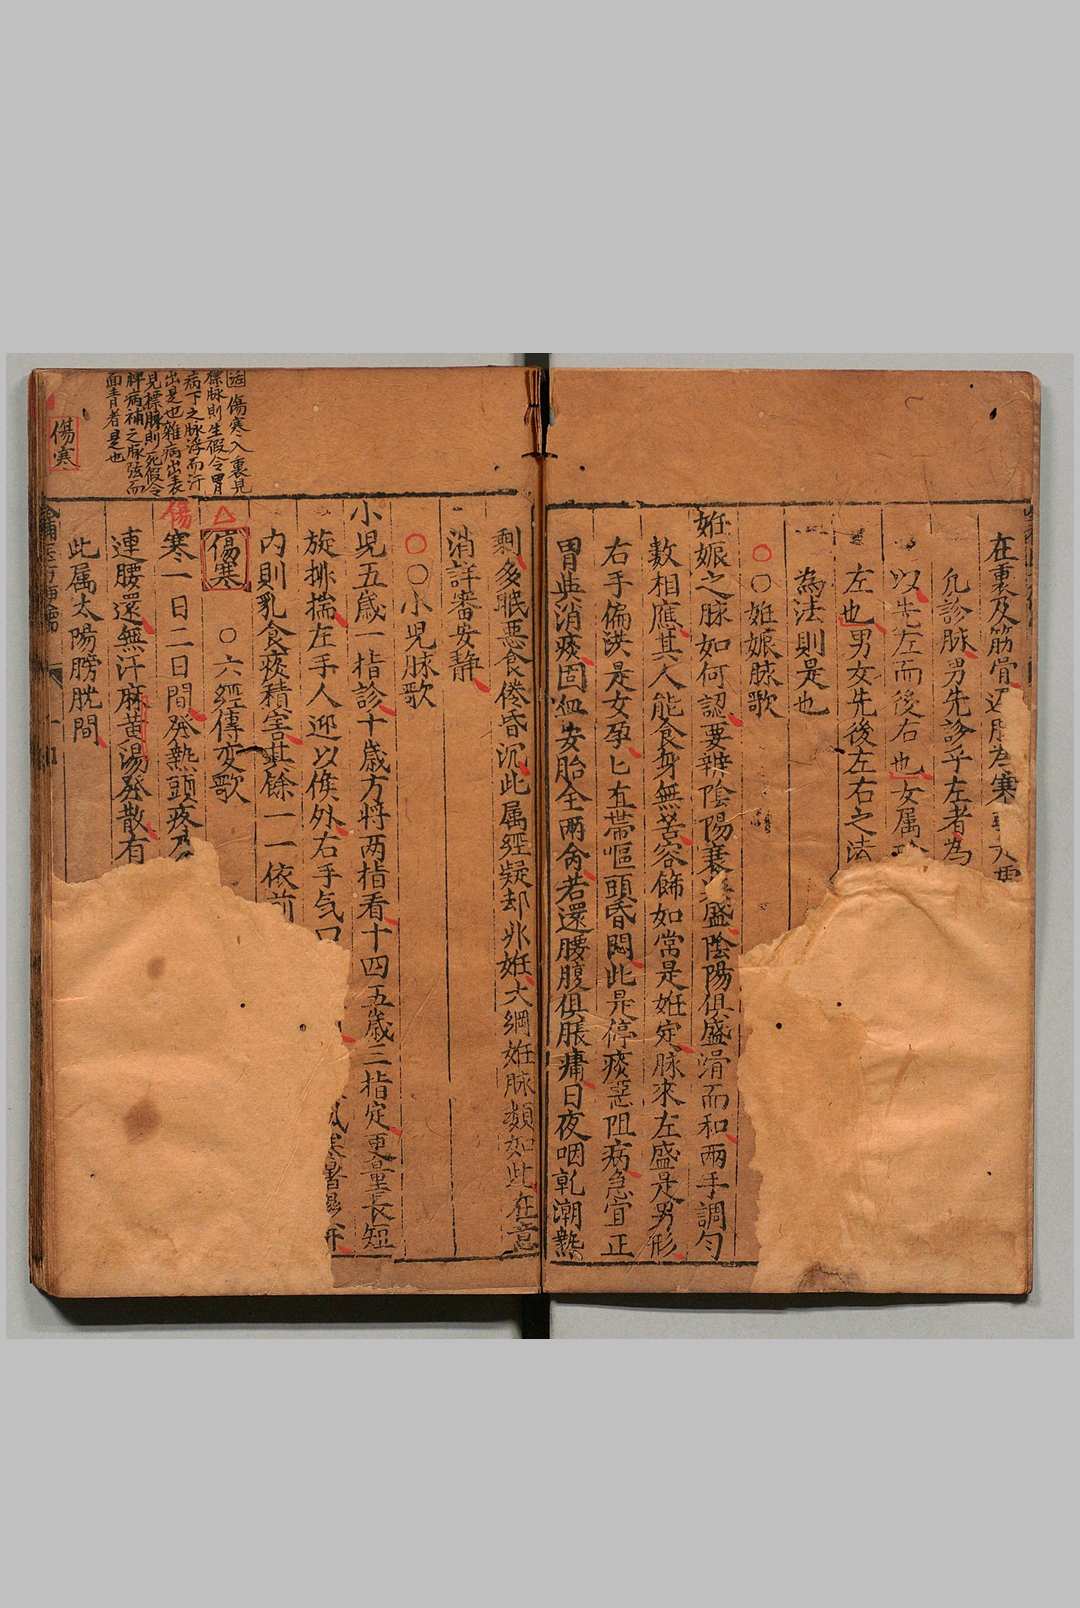 在裏及筋骨
凢診脉男先診乎左者為
以先左而後右也女属
左也男女先後左右之法
為法則是也
○○姙娠脉歌
姙娠之脉如何認要辨陰陽衰盛陰陽俱盛滑而和兩手調勻
數相應其人能食身無苦容飾如常是姙定脉來左盛是男形
右手偏洪是女孕
頭昏悶此是停痰惡阻病急宜正
胃與消痰固血安胎全兩命若還腰腹俱脹痛日夜咽乾潮熱
剩多眠惡食倦昏沉此属經疑却非姙大綱姙脉類如此在意
消詳審安静
○○小児脉歌
小児五歳一指診十歳方将两指看十四五歳三指定更量長短
旋排揣左手人迎以候外右手气口
風寒暑湿
内則乳食痰積害其餘一一依前
△傷寒 ○六經傳变歌
傷寒一日二日間發熱頭疼
連腰還無汗麻黄湯發散有
此属太陽膀胱間
傷寒
傷寒入裏見
標脉則生假令胃
病下之脉浮而汗
出是也雜病出表
見標脉則死假令
脾病補之脉弦而
面青者是也